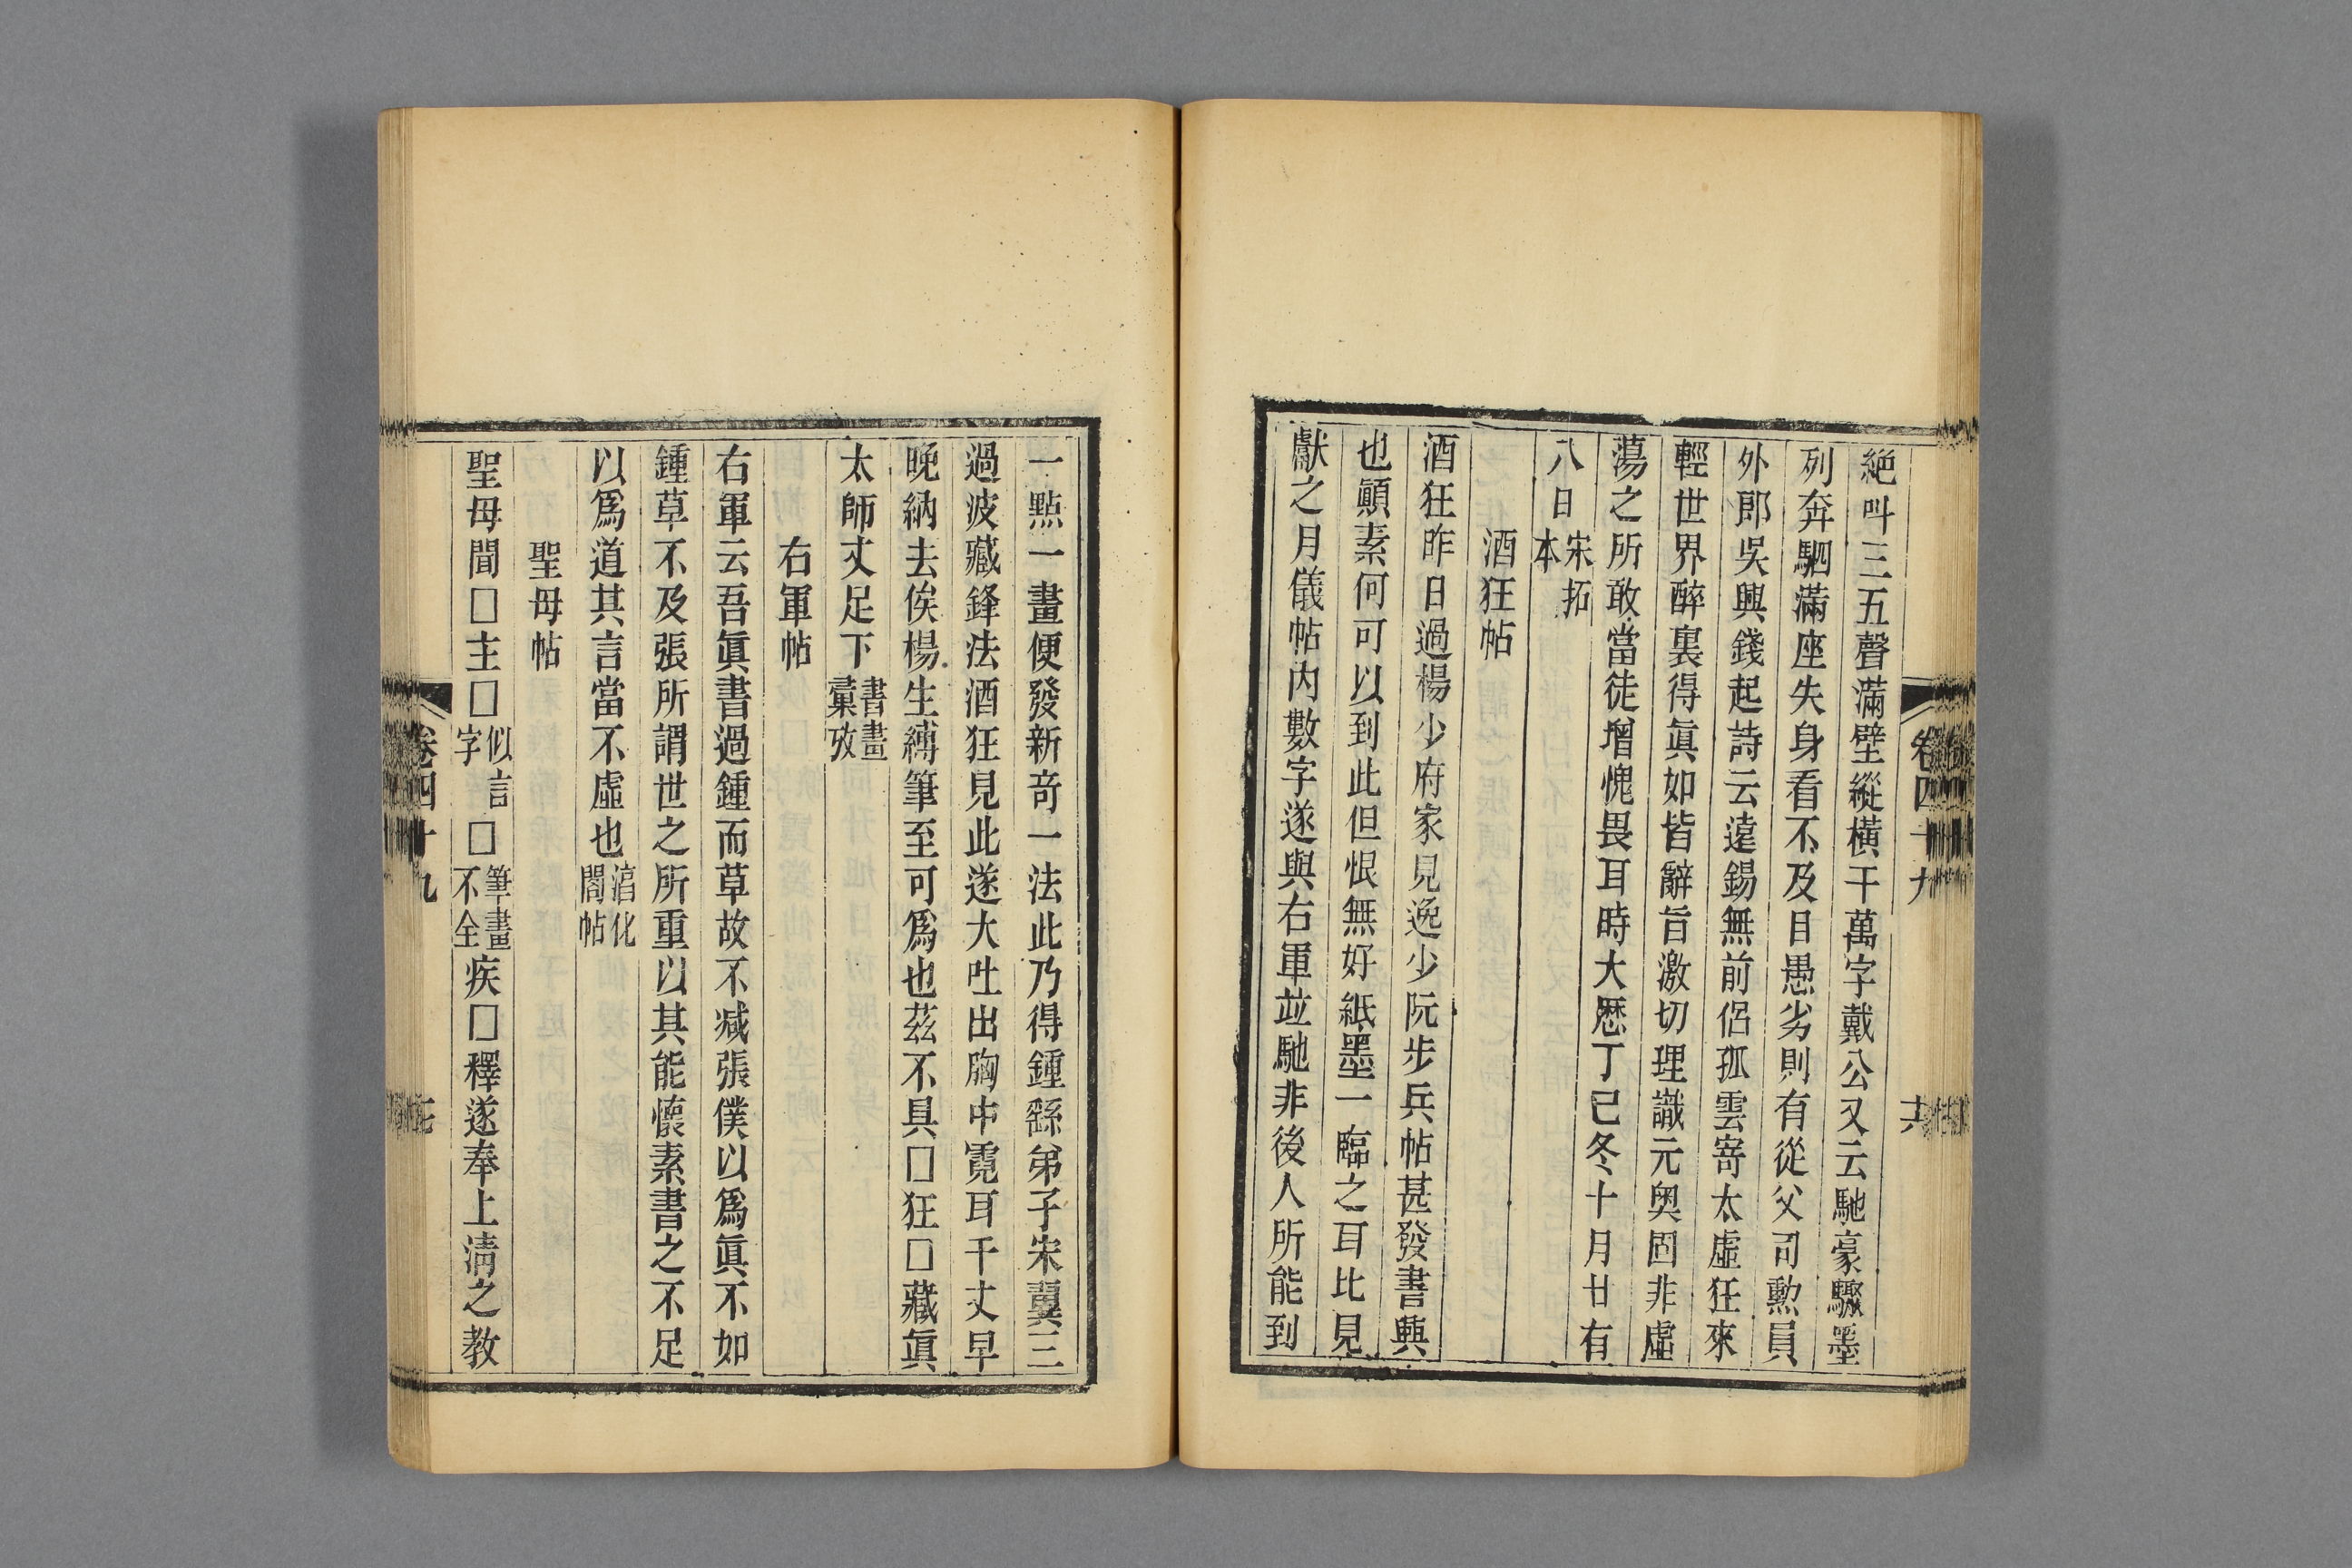 絶叫三五聲滿壁縱橫千萬字戴公又云馳豪驟墨
列奔駟滿座失身看不及目愚劣則有從父司勲員
外郎吳興錢起詩云遠錫無前侶孤雲寄太虛狂來
輕世界醉裏得眞如皆辭旨激切理識元奥固非虛
蕩之所敢當徒增愧畏耳時大歷丁巳冬十月廿有
八日宋拓本
酒狂帖
酒狂昨日過楊少府家見逸少阮步兵帖甚發書興
也顚素何可以到此但恨無好紙墨一臨之耳比見
獻之月儀帖內數字遂與右軍並馳非後人所能到
卷四十九
十六
一點一畫便發新奇一法此乃得鍾繇弟子宋翼三
過波藏鋒法酒狂見此遂大吐出胸中霓耳千丈早
晚納去俟楊生縛筆至可爲也茲不具□狂□藏眞
太師丈足下書畫彙攷
右軍帖
右軍云吾眞書過鍾而草故不减張僕以爲眞不如
鍾草不及張所謂世之所重以其能懷素書之不足
以爲道其言當不虛也淳化閣帖
聖母帖
聖母間□主□似言字□筆畫不全疾□釋遂奉上清之教
卷四十九